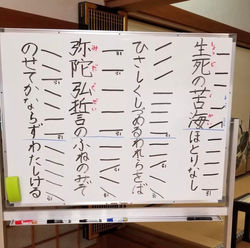 生死の苦海ほとりなし
ひさしくしづめるわれらをば
弥陀弘誓のふねのみぞ
のせてかならずわたしける